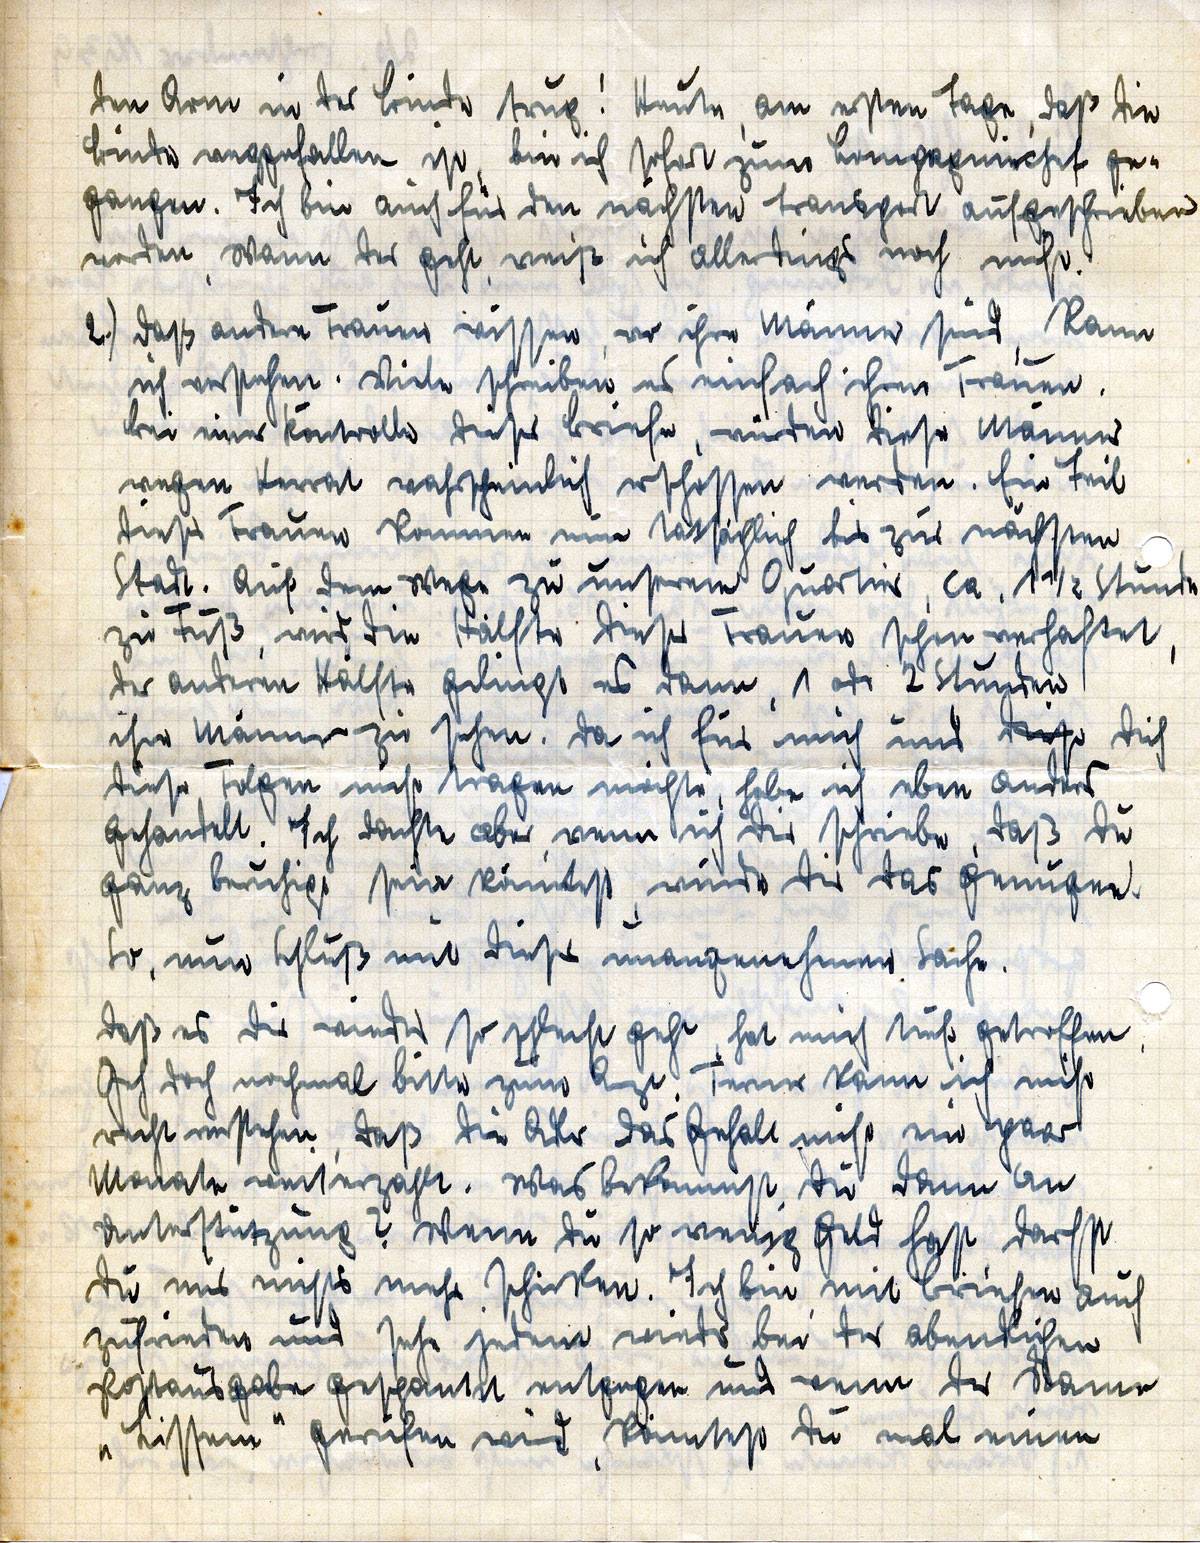 den Arm in der Binde trug! Heute, am ersten Tage, daß die
Binde weggefallen ist, bin ich sofort zum Kompagniechef ge-
gangen. Ich bin auch für den nächsten Transport aufgeschrieben
worden, wann der geht, weiß ich allerdings noch nicht.
2.) Daß andere Frauen wissen, wo ihre Männer sind, kann
ich verstehen. Viele schreiben es einfach ihren Frauen.
Bei einer Kontrolle dieser Briefe, würden diese Männer
wegen Verrat wahrscheinlich erschossen werden. Ein Teil
dieser Frauen kommen nun tatsächlich bis zur nächsten
Stadt. Auf dem Wege zu unserem Quartier, ca. 1 1/2 Stunde
zu Fuß, wird die Hälfte dieser Frauen schon verhaftet,
der anderen Hälfte gelingt es dann, 1 oder 2 Stunden
ihre Männer zu sehen. Da ich für mich und Dich
diese Folgen nicht tragen möchte, habe ich eben anders
gehandelt. Ich dachte aber, wenn ich Dir schriebe, daß Du
ganz beruhigt sein könntest, würde Dir das genügen.
So, nun Schluß mit dieser unangenehmen Sache.
Daß es Dir wieder so schlecht geht, hat mich tief getroffen.
Geh doch nochmal bitte zum Arzt. Ferner kann ich nicht
recht verstehen, daß die Adler das Gehalt nicht ein paar
Monate weiterzahlt. Was bekommst Du dann an
Unterstützung? Wenn Du so wenig Geld hast, darfst
Du mir nichts mehr schicken. Ich bin mit Briefen auch
zufrieden und sehe jedem wieder bei der abendlichen
Postausgabe gespannt entgegen und wenn der Name
„Lissem" gerufen wird, könntest Du mal einen